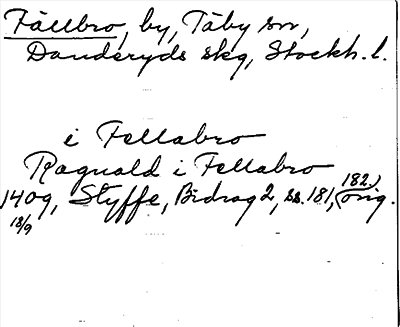 Fällbro, by, Täby sn,
Danderyds skg, Stockh. l.
i Fellabro
Ragnald i Fellabro
1409, Styffe, Bidrag 2, ss. 181, 182. (orig.
18/9